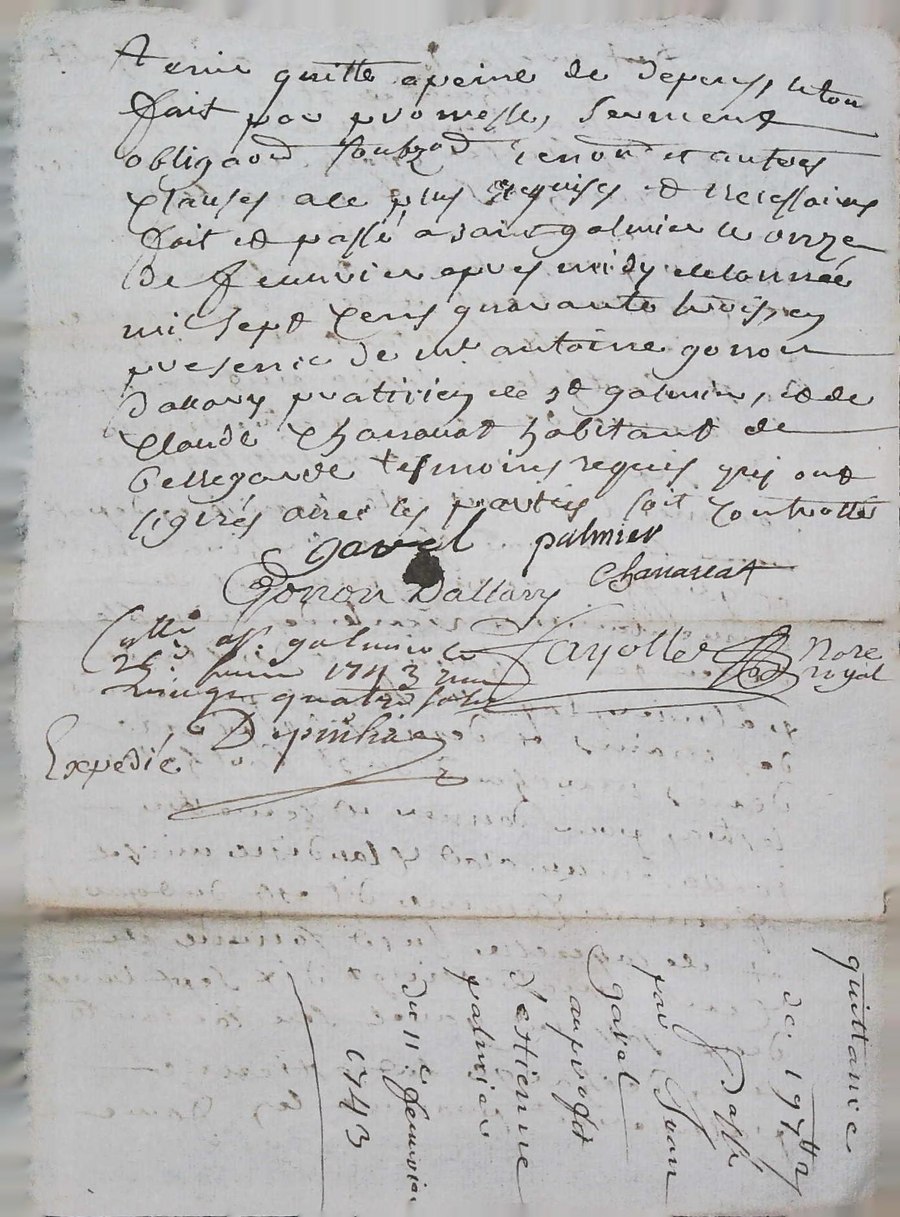 A tenir quitte apeine de depens, le tou
fait par promesse, serment
obligaon soubzon renon et autres
clauses a ce plus requises et necessaires
fait et passé a saint galmier le onze
de feuvrier apres midy de lannée
mil sept cens quarante trois en
presence de mre antoine gonon
dallary praticien de st galmier, et de
Claude Chanavat habitant de
bellegarde tesmoins requis qui ont
signés avec les parties soit controllé
gavel palmier
Gonon Dallary Chanavat
Fayolle Nore
royal
Contllé a St galmier le
1743
vingt quatre sols
Expedié
quittance
de 197tt
passé
par Jean
gavel
au profit
d'estienne
palmier
du 11e feuvrier
1743